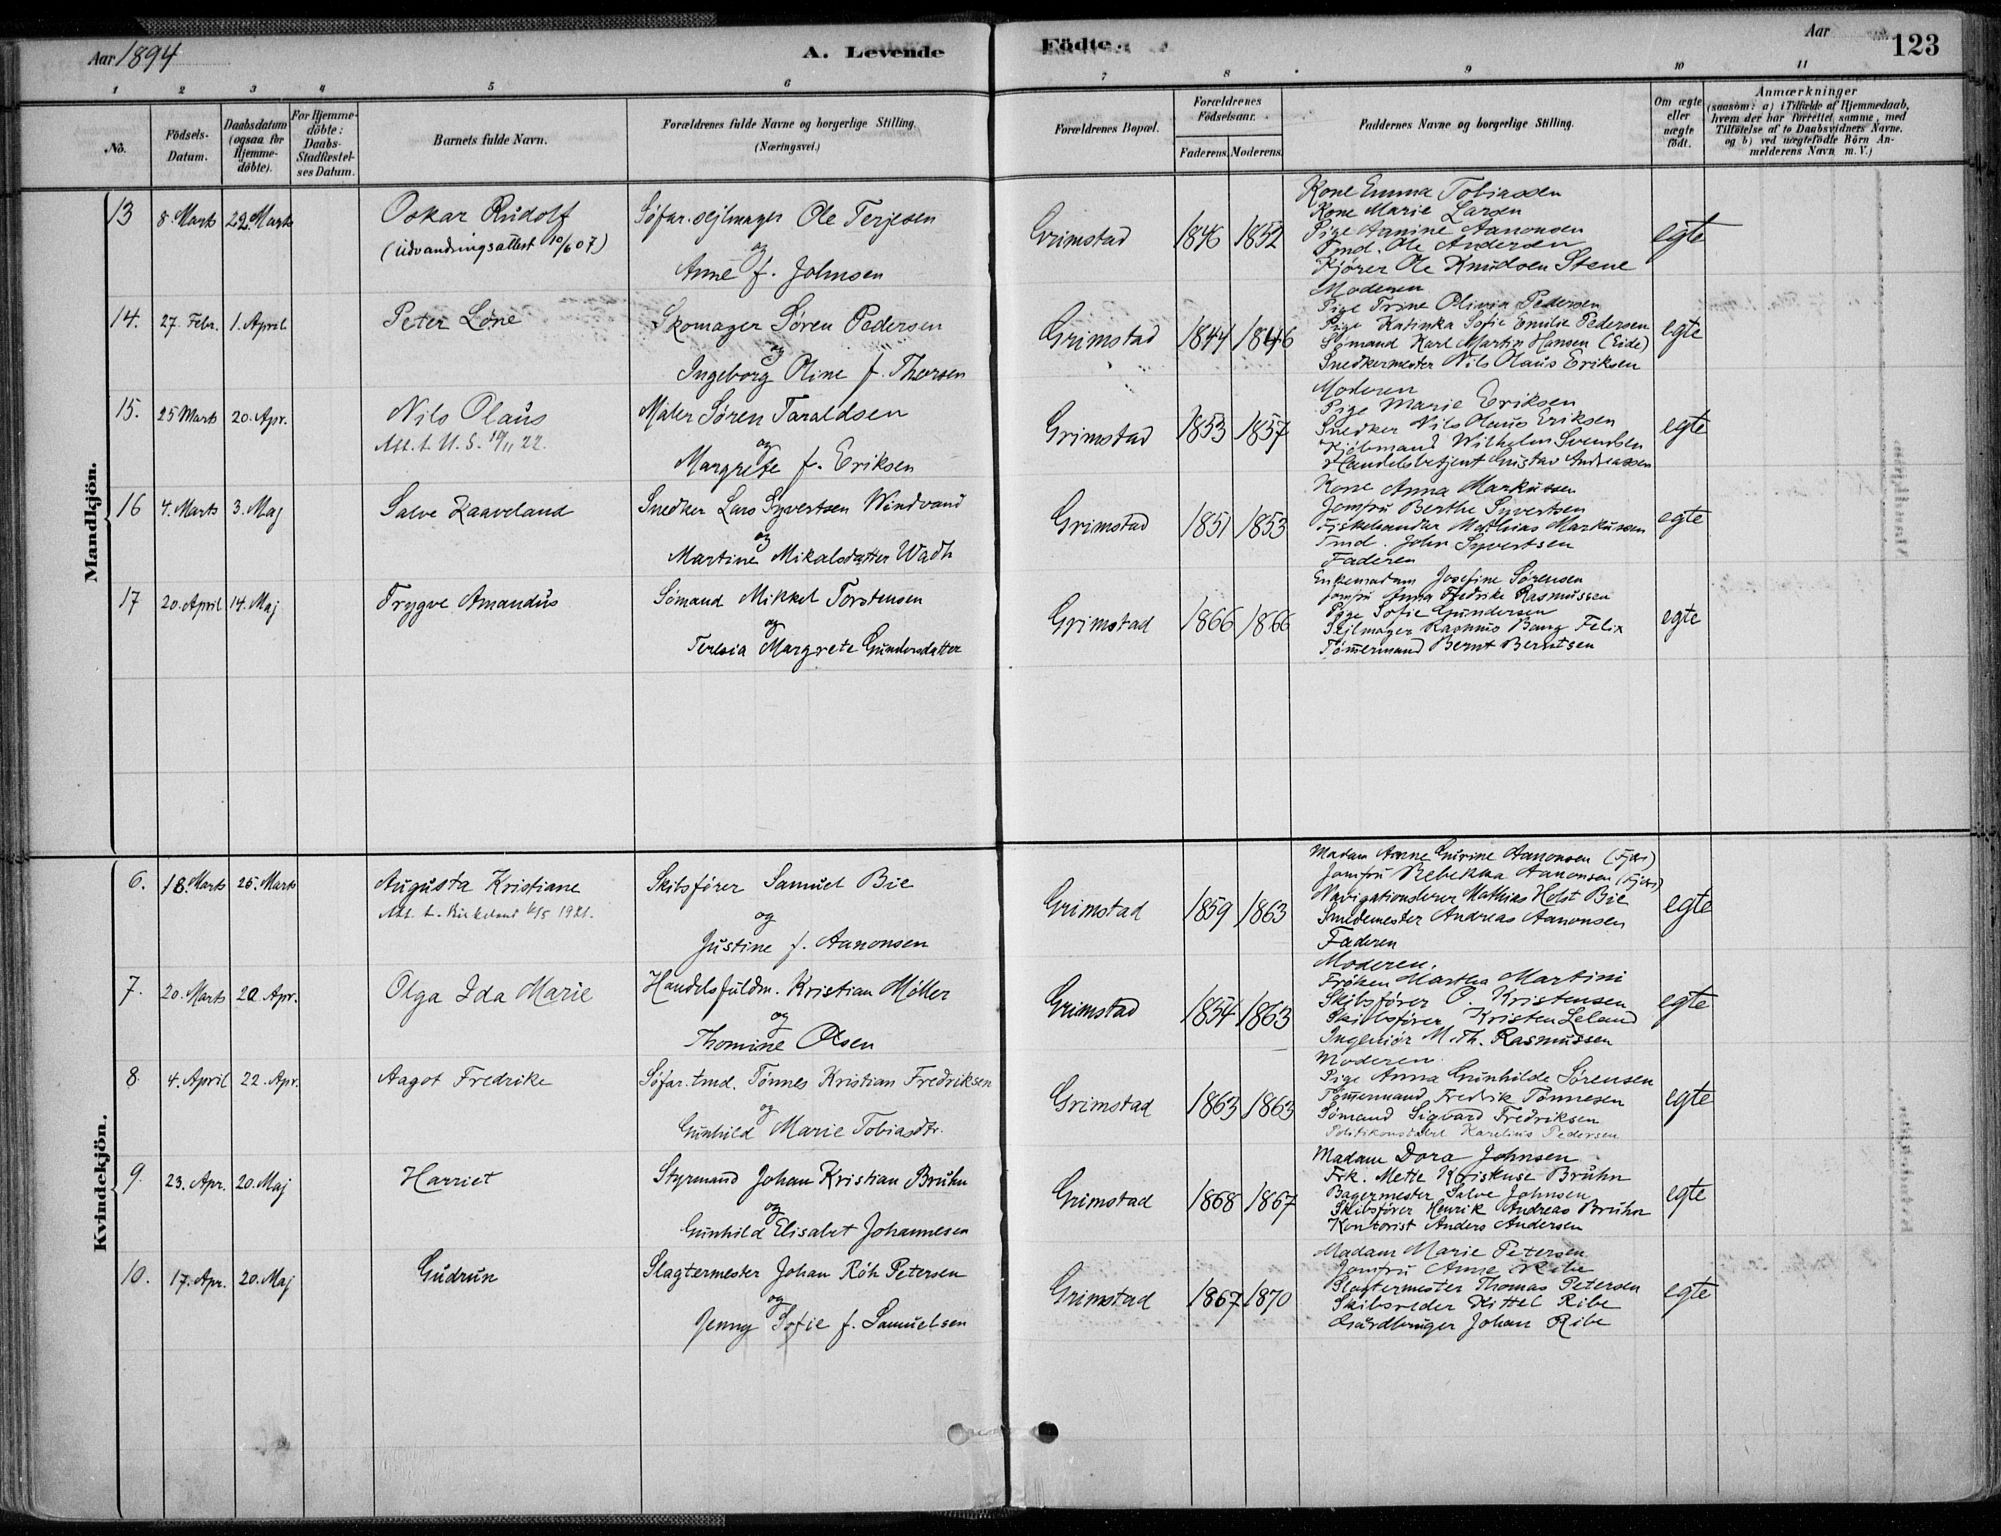 Aar 1894
A. Levende
Födte.
Aar
123
1 2 3 4 5 6 7 8 9 10 11
No.
Födsels-Datum.
Daabsdatum (ogsaa for Hjemmedöbte).
For Hjemmedöbte: Daabs-Stadfæstelses Datum.
Barnets fulde Navn.
Forældrenes fulde Navne og borgerlige Stilling.
(Næringsvei.)
Forældrenes Bopæl.
Forældrenes Födselsaar.
Faderens. Moderens.
Faddernes Navne og borgerlige Stilling.
Om ægte eller uægte födt.
Anmærkninger
(saasom: a) i Tilfælde af Hjemmedaab,
hvem der har forrettet samme, med
Tilföielse af to Daabsvidners Navne,
og b) ved uægtefödte Börn Anmelderens Navn m. V.)
Mandkjön.
13 8. Marts 22. Marts Oskar Rudolf
(Udvandringsattest 10/6 07)
Søfar. sejlmager Ole Terjesen
og
Anne f. Johnsen
Grimstad 1846 1852
Kone Emma Tobiassen
Kone Marie Larsen
Pige Aanine Aanonsen
Tmd. Ole Andersen
Kjører Ole Knudsen Stene
egte
14. 27. Febr. 1. April Peter Löne
Skomager Sören Pedersen
og
Ingeborg Oline f. Thorsen
Grimstad 1844 1846
Moderen
Pige Trine Olivia Pedersen
Pige Katinka Sofie Emilie Pedersen
Sömand Karl Martin Hansen (Eide)
Snedkermester Nils Olaus Eriksen
egte
15. 25 Marts 20. Apr. Nils Olaus
Att. t. U. S. 10/11 22.
Maler Søren Taraldsen
og
Margrete f. Eriksen
Grimstad 1853 1857
Moderen
Pige Marie Eriksen
Snedker Nils Olaus Eriksen
Kjøbmand Wilhelm Svendsen
Handelsbetjent Gustav Andreassen
egte
16 4. Marts 3. Maj Salve Zaaveland
Snedker Lars Syvertsen Windvand
og
Martine Mikalsdatter Wadh
Grimstad 1851 1853
Kone Anna Markussen
Jomfru Berthe Syvertsen
Fiskehandler Mathias Markussen
Tmd. John Syvertsen
Faderen
egte
17 20. April 14. Maj Trygve Amandus
Sömand Mikkel Torstensen
og
Teresia Margrete Gundersdatter
Grimstad 1866 1866
Enkemadam Josefine Sørensen
Jomfru Anna Fredrike Rasmussen
Pige Sofie Gundersen
Sejlmager Rasmus Bang Felix
Tömmermand Bernt Berntsen
egte
Kvindekjön.
6. 18. Marts 26. Marts Augusta Kristiane
Att. t. Kirkeland 1921.
Skibsfører Samuel Bie
og
Justine f. Aanonsen
Grimstad 1859 1863
Madam Anne Gurine Aanonsen (Fjære)
Jomfru Rebekka Aanonsen (Fjære)
Navigationslærer Mathias Holst Bie
Smedemester Andreas Aanonsen
Faderen
egte
7. 20. Marts 20. Apr. Olga Ida Marie
Handelsfuldm. Kristian Möller
og
Thomine Olsen
Grimstad 1854 1863
Moderen.
Frøken Martha Martini
Skibsfører O. Kristensen
Skibsfører Kristen Leland
Ingeniør M. Th. Rasmussen
egte
8. 4. April 22. Apr. Aagot Fredrike
Søfar. tmd. Tönnes Kristian Fredriksen
og
Gunhild Marie Tobiasdtr.
Grimstad 1863 1863
Moderen.
Pige Anna Gunhilde Sörensen
Tömmermand Fredrik Tönnesen
Sömand Sigvard Fredriksen
Politikonstabel Karelius Pedersen
egte
9. 23. Apr. 20. Maj Harriet
Styrmand Johan Kristian Bruhn
og
Gunhild Elisabet Johannesen
Grimstad 1868 1867
Madam Dora Johnsen
Frk. Mette Bruhn
Bagermester Salve Johnsen
Skibsfører Henrik Andreas Bruhn
Kontorist Anders Andersen
egte
10. 17. Apr. 20. Maj Gudrun
Slagtermester Johan Röh Petersen
og
Jenny Sofie f. Samuelsen
Grimstad 1867 1870
Madam Marie Petersen
Jomfru Anne Ribe
Slagtermester Thomas Petersen
Skibsreder Kittel Ribe
Gårdbruger Johan Ribe
egte